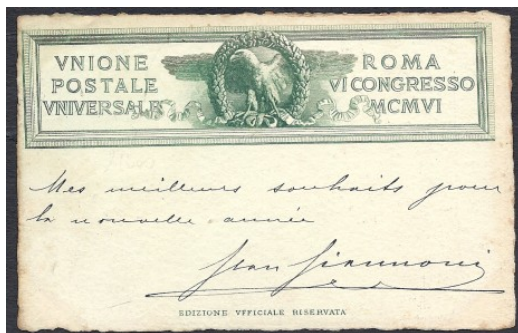 VNIONE
POSTALE
VNIVERSALE
ROMA
VI CONGRESSO
MCMVI
Mes meilleurs souhaits pour
la nouvelle année
Jean Giannoni
EDIZIONE VFFICIALE RISERVATA